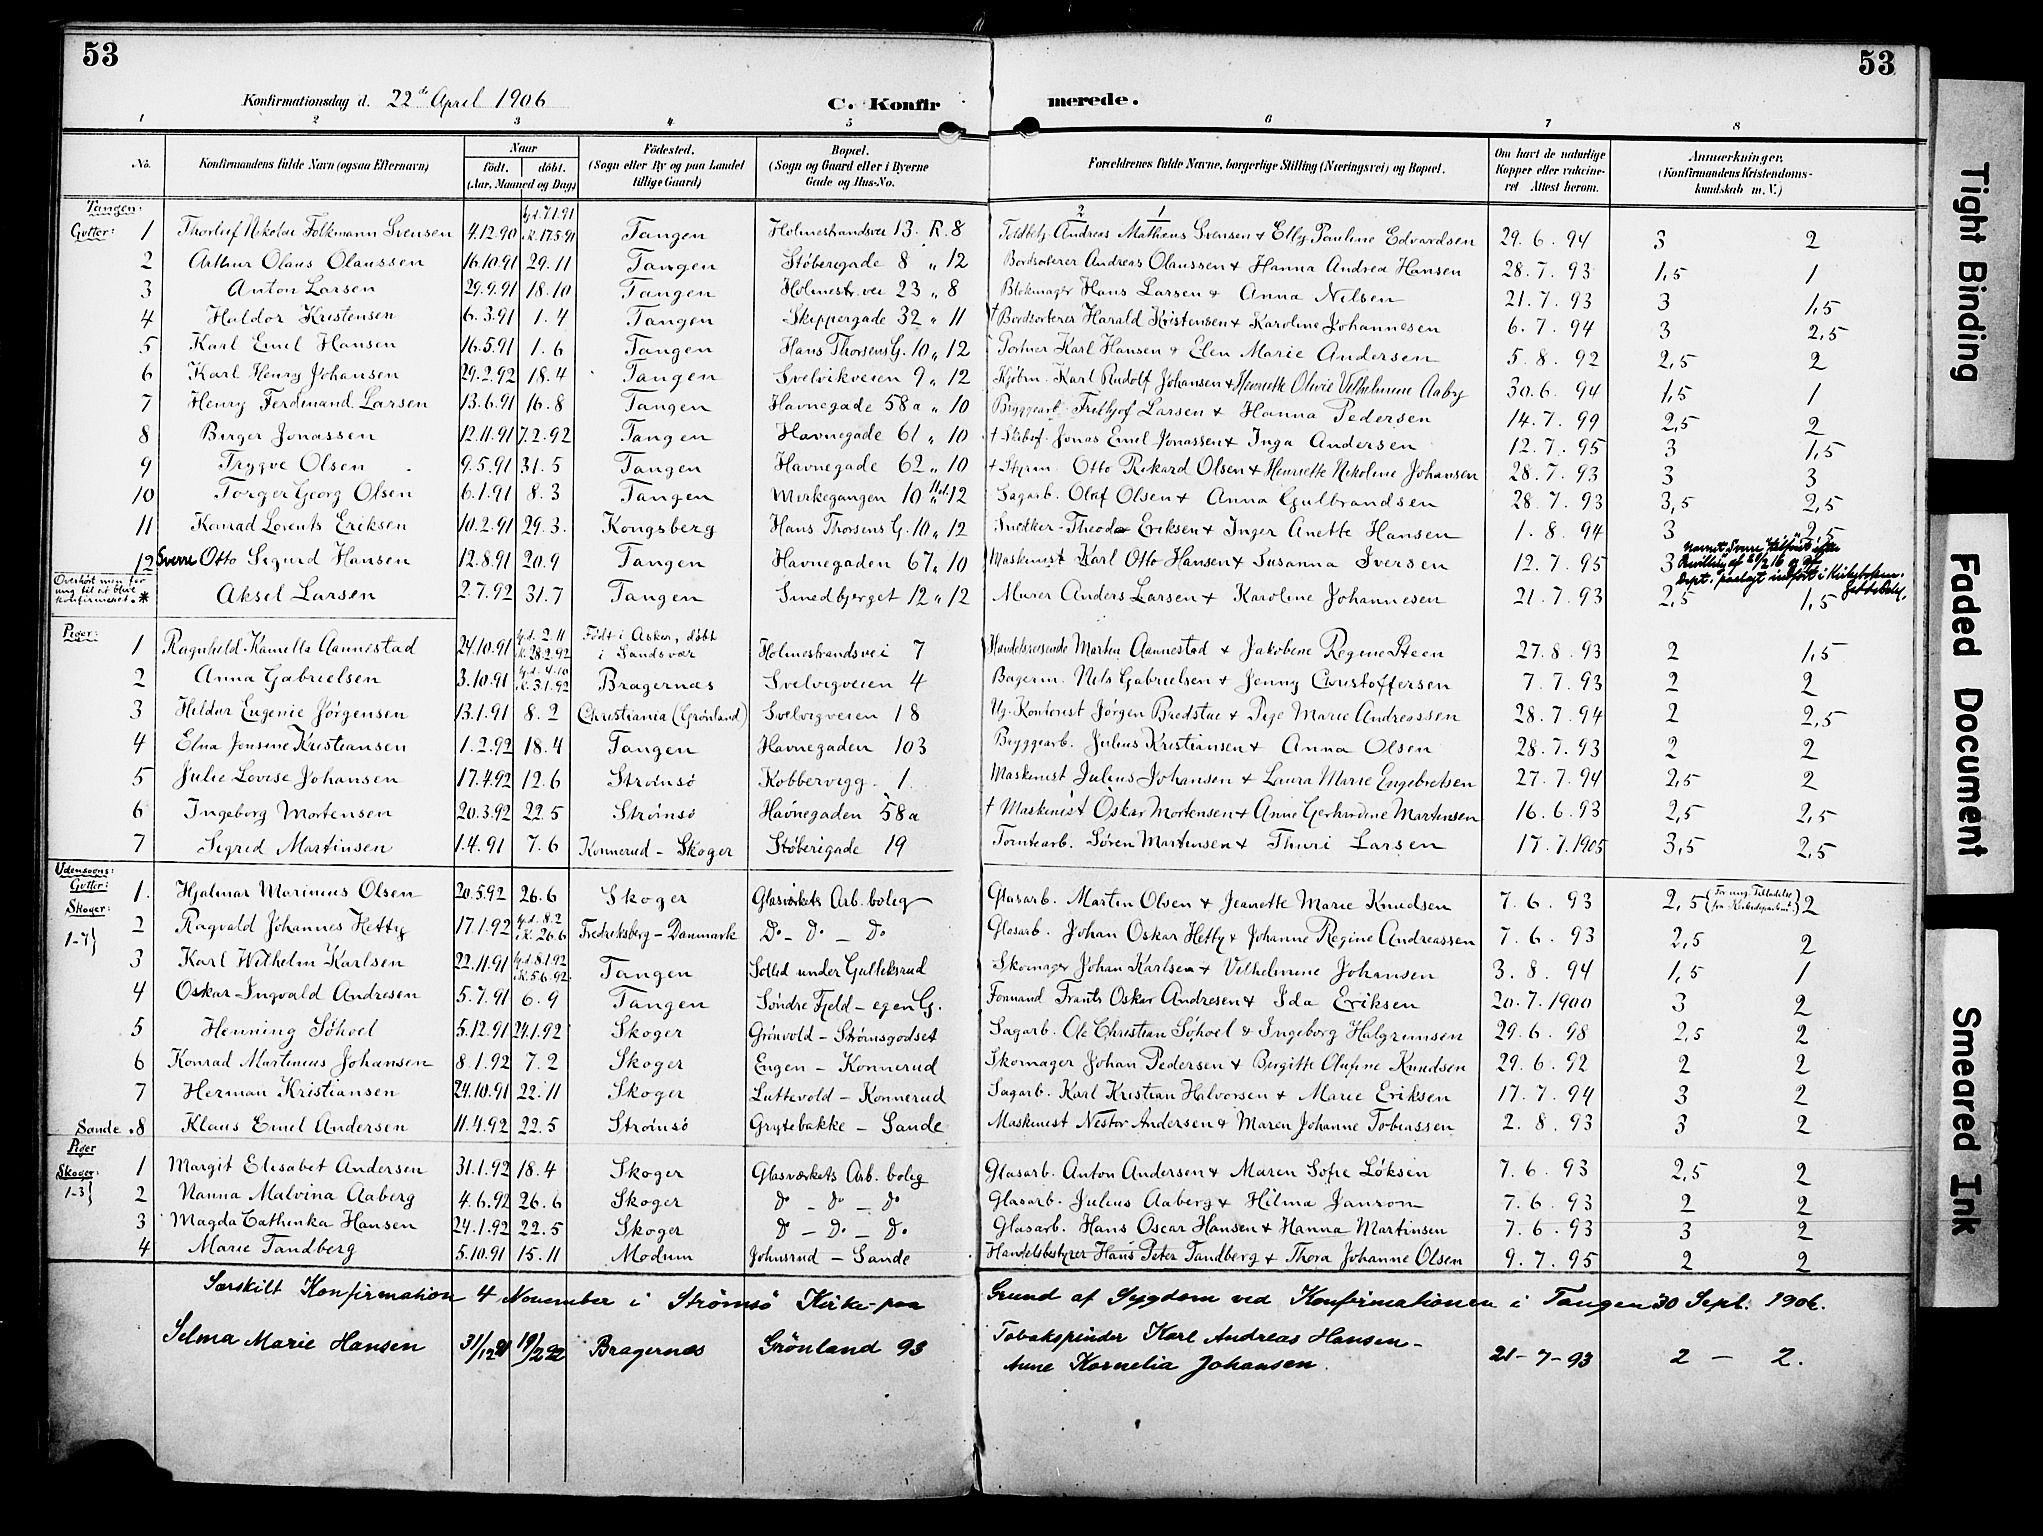 53
53
Konfirmationsdag d. 22de April 1906
C. Konfir merede.
1 2 3 4 5 6 7 8
No. Konfirmandens fulde Navn (ogsaa Efternavn) Naar født. døbt. (Aar, Maaned og Dag) Fødested. (Sogn eller By og paa Landet tillige Gaard) Bopæl. (Sogn og Gaard eller i Byerne Gade og Hus-No. Forældrenes fulde Navne, borgerlige Stilling (Næringsvei) og Bopæl. Om havt de naturlige Kopper eller vakcineret Attest herom. Anmærkninger. (Konfirmandens Kristendomskundskab m. V.)
Tangen:
Gutter: 1 Thorleif Nikolai Folkmann Svensen 4.12.90 hj.d. 7.1.91 i K. 17.5.91 Tangen Holmestrandsvei 13. R. 8 Andreas Matheus Svensen & Elly Pauline Edvardsen 29. 6. 94 3 2
2 Arthur Olaus Olaussen 16.10.91 29.11 Tangen Støberigade 8 " 12 Bordsorterer Andreas Olaussen & Hanna Andrea Hansen 28. 7. 93 1,5 1
3 Anton Larsen 29.9.91 18.10 Tangen Holmestr. vei 23 " 8 Blokmager Hans Larsen & Anna Nilsen 21. 7. 93 3 1,5
4 Haldor Kristensen 6.3.91 1.4 Tangen Skippergade 32 " 11 † Bordsorterer Harald Kristensen & Karoline Johannesen 6. 7. 94 3 2,5
5 Karl Emil Hansen 16.5.91 1.6 Tangen Hans Thorsens G. 10 " 12 Portner Karl Hansen & Elen Marie Andersen 5. 8. 92 2,5 2
6 Karl Henry Johansen 29.2.92 18.4 Tangen Svelvikveien 9 " 12 Kjøbm. Karl Rudolf Johansen & Henriette Olivie Vilhelmine Aaby 30. 6. 94 1,5 1
7 Henry Ferdinand Larsen 13.6.91 16.8 Tangen Havnegade 58a " 10 Bryggearb. Frithjof Larsen & Hanna Pedersen 14. 7. 99 2,5 2
8 Birger Jonassen 12.11.91 7.2.92 Tangen Havnegade 61 " 10 † Jonas Emil Jonassen & Inga Andersen 12. 7. 95 3 1,5
9 Trygve Olsen 9.5.91 31.5 Tangen Havnegade 62 " 10 † Styrm. Otto Rikard Olsen & Henriette Nikoline Johansen 28. 7. 93 3 3
10 Torger Georg Olsen 6.1.91 8.3 Tangen Mørkegangen 10 " 12 Sagarb. Olaf Olsen & Anna Gulbrandsen 28. 7. 93 3,5 2,5
11 Konrad Lorents Eriksen 10.2.91 29.3. Kongsberg Hans Thorsens G. 10 " 12 Snedker Theodor Eriksen & Inger Anette Hansen 1. 8. 94 3 2,5
12 Sverre Otto Sigurd Hansen 12.8.91 20.9 Tangen Havnegaden 67 " 10 Maskinist Karl Otto Hansen & Susanna Iversen 12. 7. 95 3
Navnet Sverre tilføiet efter
Bevilling af
Dept. paalagt indført i Kirkeboken.
Overhørt men for
ung til at blive
konfirmeret. * Aksel Larsen 2.7.92 31.7 Tangen Smedbjerget 12 " 12 Murer Anders Larsen & Karoline Johannesen 21. 7. 93 2,5 1,5
Piger:
1 Ragnhild Kamella Aannestad 24.10.91 hj.d. 2.11 i K. 28.2.92 Født i Asker, døbt i Sandsvær Holmestrandsvei 7 Handelsreisende Morten Aannestad & Jakobine Regine Steen 27. 8. 93 2 1,5
2 Anna Gabrielsen 3.10.91 hj.d. 4.10 i K. 3.1.92 Bragernæs Svelvigveien 4 Bagerm. Nils Gabrielsen & Jenny Christoffersen 7. 7. 93 2 2
3 Hildur Eugenie Jørgensen 13.1.91 8.2 Christiania (Grønland) Svelvigveien 18 Ug. Kontorist Jørgen Bredstue & Pige Marie Andreassen 28. 7. 94 2 2,5
4 Elna Jensine Kristiansen 1.2.92 18.4 Tangen Havnegaden 103 Bryggearb. Julius Kristiansen & Anna Olsen 28. 7. 93 2 2
5 Julie Lovise Johansen 17.4.92 12.6 Strømsø Kobbervigg. 1. Maskinist Julius Johansen & Laura Marie Engebretsen 27. 7. 94 2,5 2
6 Ingeborg Mortensen 20.3.92 22.5 Strømsø Havnegaden 58a † Maskinist Oskar Mortensen & Anne Gerhardine Martinsen 16. 6. 93 2,5 2,5
7 Sigrid Martinsen 1.4.91 7.6 Konnerud - Skoger Støberigade 19 Tomtearb. Søren Martinsen & Thuri Larsen 17. 7. 1905 3,5 2,5
Udensogns:
Gutter:
Skoger:
1-7}
1. Hjalmar Marinius Olsen 20.5.92 26.6 Skoger Glasværkets Arb. bolig Glasarb. Martin Olsen & Jeanette Marie Knudsen 7. 6. 93 2,5 (For ung. Tilladelse fra Kirkedepartem.) 2
2 Ragvald Johannes Hetty 17.1.92 hj.d. 8.2 i K. 26.6 Fredriksberg - Danmark Do - Do - Do Glasarb. Johan Oskar Hetty & Johanne Regine Andreassen 7. 6. 93 2,5 2
3 Karl Wilhelm Karlsen 22.11.91 hj.d. 8.1.92 i K. 5.6.92 Tangen Sollid under Gulleksrud Skomager Johan Karlsen & Vilhelmine Johansen 3. 8. 94 1,5 1
4 Oskar Ingvald Andresen 5.7.91 6.9 Tangen Søndre Fjeld - egen G. Formand Frants Oskar Andresen & Ida Eriksen 20. 7. 1900 3 2
5 Henning Søhoel 5.12.91 24.1.92 Skoger Grønvold - Strømsgodset Sagarb. Ole Christian Søhoel & Ingeborg Halgrimsen 29. 6. 98 2,5 2
6 Konrad Martinius Johansen 8.1.92 7.2 Skoger Engen - Konnerud Skomager Johan Pedersen & Birgitte Olufine Knudsen 29. 6. 92 2 2
7 Herman Kristiansen 24.10.91 22.11 Skoger Luttevold - Konnerud Sagarb. Karl Kristian Halvorsen & Marie Eriksen 17. 7. 94 3 2
Sande. 8 Klaus Emil Andersen 11.4.92 22.5 Strømsø Grytebakke - Sande Maskinist Nestor Andersen & Maren Johanne Tobiassen 2. 8. 93 3 2
Piger
Skoger:
1-3}
1 Margit Elisabet Andersen 31.1.92 18.4 Skoger Glasværkets Arb. bolig Glasarb. Anton Andersen & Maren Sofie Løksen 7. 6. 93 2,5 2
2 Nanna Malvina Aaberg 4.6.92 26.6 Skoger Do - Do - Do Glasarb. Julius Aaberg & Hilma Janson 7. 6. 93 2 2
3 Magda Cathinka Hansen 24.1.92 22.5 Skoger Do - Do - Do Glasarb. Hans Oscar Hansen & Hanna Martinsen 7. 6. 93 3 2
4 Marie Tandberg 5.10.91 15.11 Modum Johnsrud - Sande Handelsbestyrer Hans Peter Tandberg & Thora Johanne Olsen 9. 7. 95 2 2
Særskilt Konfirmation 4 November i Strømsø Kirke paa Grund af Sygdom ved Konfirmationen i Tangen 30 Sept. 1906.
Selma Marie Hansen 31/12 91 19/2 92 Bragernæs Grønland 93 Tobakspinder Karl Andreas Hansen - Anne Kornelia Johansen. 21-7-93 2 - 2.
Tight Binding
Faded Document
Smeared Ink